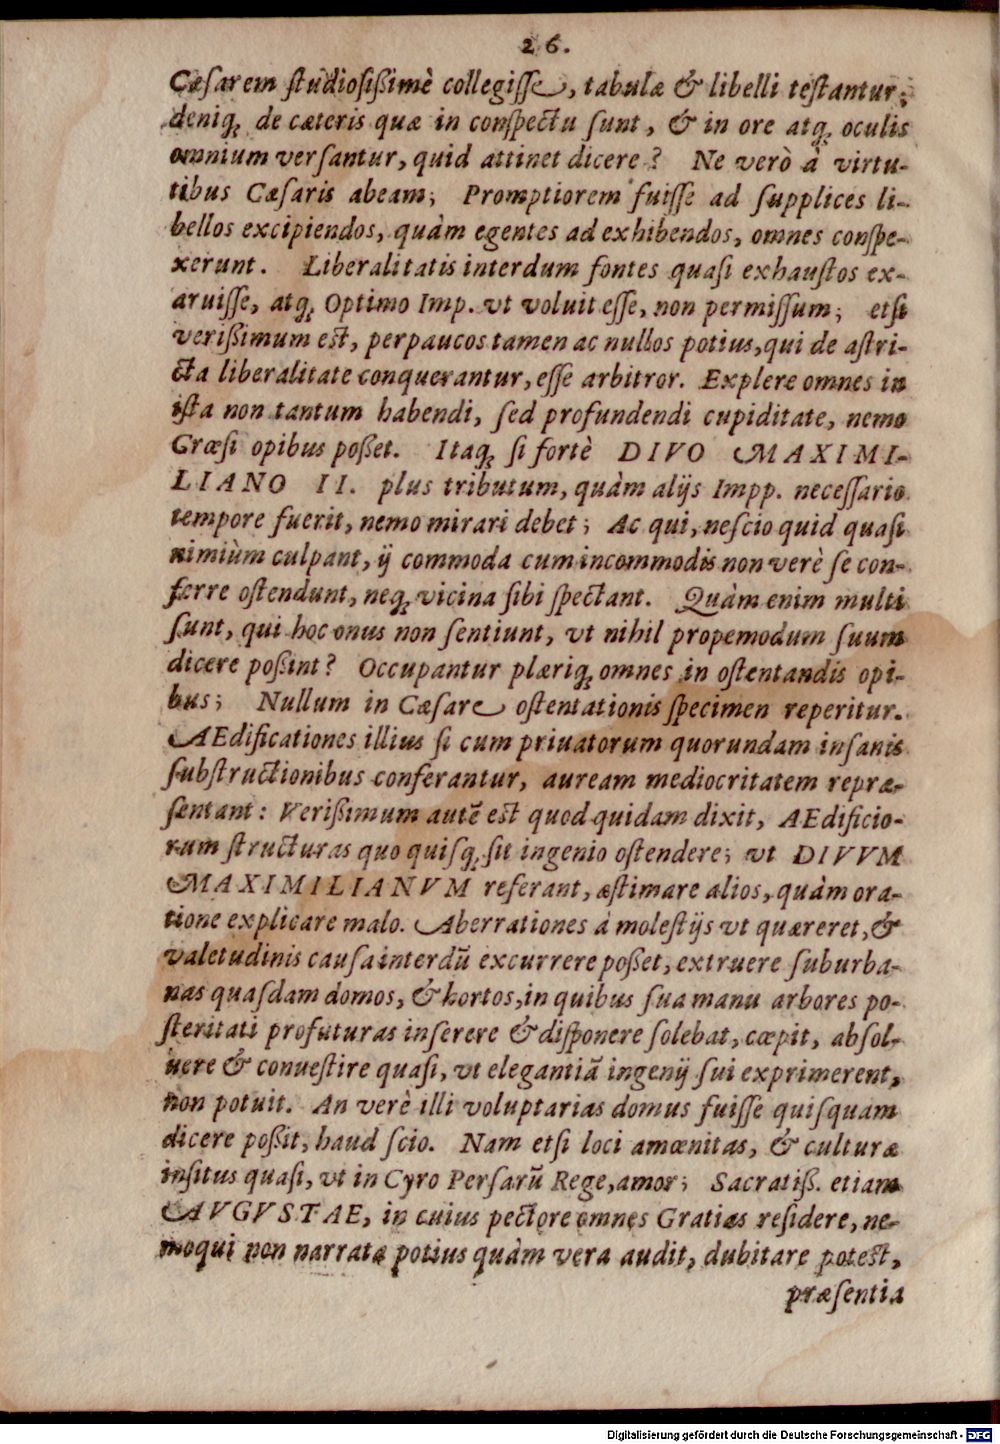 26.
Cæſarem ſtudioſißimè collegiſſe, tabulæ & libelli teſtantur;
deniq; de cæteris quæ in conſpectu ſunt, & in ore atq; oculis
omnium verſantur, quid attinet dicere? Ne verò à virtu-
tibus Cæſaris abeam; Promptiorem fuiſſe ad ſupplices li-
bellos excipiendos, quàm egentes ad exhibendos, omnes conſpe-
xerunt. Liberalitatis interdum fontes quaſi exhauſtos ex-
aruiſſe, atq; Optimo Imp. vt voluit eſſe, non permiſſum; etſi
verißimum est, perpaucos tamen ac nullos potius, qui de aſtri-
cta liberalitate conquerantur, eſſe arbitror. Explere omnes in
iſta non tantum habendi, ſed profundendi cupiditate, nemo
Græſi opibus poßet. Itaq; ſi fortè DIVO MAXIMI-
LIANO II. plus tributum, quàm alijs Impp. neceſſario
tempore fuerit, nemo mirari debet; Ac qui, neſcio quid quaſi
nimiùm culpant, ij commoda cum incommodis non verè ſe con-
ferre oſtendunt, neq; vicina ſibi ſpectant. Quàm enim multi
ſunt, qui hoc onus non ſentiunt, vt nihil propemodum ſuum
dicere poßint? Occupantur plæriq; omnes in oſtentandis opi-
bus; Nullum in Cæſare oſtentationis ſpecimen reperitur.
AEdificationes illius ſi cum priuatorum quorundam inſanis
ſubſtructionibus conferantur, auream mediocritatem repræ-
ſentant: Verißimum autē est quod quidam dixit, AEdificio-
rum ſtructuras quo quiſq; ſit ingenio oſtendere; vt DIVVM
MAXIMILIANVM referant, æſtimare alios, quàm ora-
tione explicare malo. Aberrationes à moleſtijs vt quæreret, &
valetudinis cauſa interdū excurrere poßet, extruere ſuburba-
nas quaſdam domos, & hortos, in quibus ſua manu arbores po-
ſteritati profuturas inſerere & diſponere ſolebat, cœpit, abſol-
uere & conueſtire quaſi, vt elegantiā ingenij ſui exprimerent,
non potuit. An verè illi voluptarias domus fuiſſe quiſquam
dicere poßit, haud ſcio. Nam etſi loci amœnitas, & culturæ
inſitus quaſi, vt in Cyro Perſarū Rege, amor; Sacratiß. etiam
AVGVSTAE, in cuius pectore omnes Gratias reſidere, ne-
mo qui non narrata potius quàm vera audit, dubitare potest,
præſentia
Digitalisierung gefördert durch die Deutsche Forschungsgemeinschaft - DFG